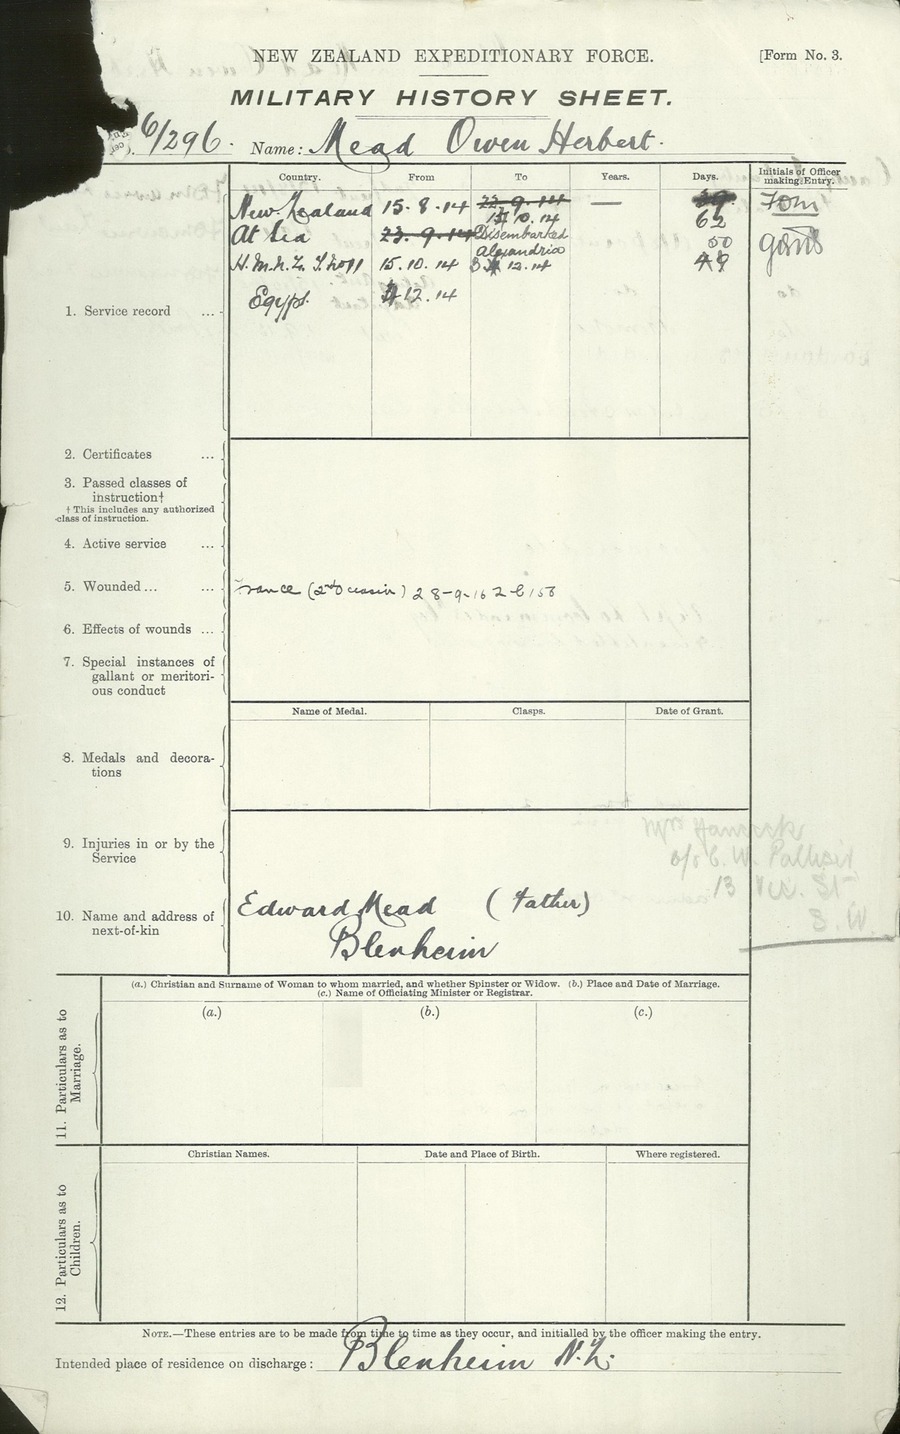 NEW ZEALAND EXPEDITIONARY FORCE.
[Form No. 3.
MILITARY HISTORY SHEET.
6/296. Name: Mead Owen Herbert.
Country. From To Years. Days. Initials of Officer making Entry.
1. Service record ...
New Zealand 15.8.14 22.9.14 — 39
10.14 62
At Sea 23.9.14 Disembarked 50
Alexandria
15.10.14 3 12.14 49
Egypt 12.14
2. Certificates ...
3. Passed classes of
instruction†
† This includes any authorized
class of instruction.
4. Active service ...
5. Wounded... ...
France (2nd Occasion) 28-9-16
6. Effects of wounds ...
7. Special instances of
gallant or meritori-
ous conduct
Name of Medal. Clasps. Date of Grant.
8. Medals and decora-
tions
9. Injuries in or by the
Service
13 Vic. St
S.W.
10. Name and address of
next-of-kin
Edward Mead (Father)
Blenheim
(a.) Christian and Surname of Woman to whom married, and whether Spinster or Widow. (b.) Place and Date of Marriage.
(c.) Name of Officiating Minister or Registrar.
11. Particulars as to
Marriage.
(a.) (b.) (c.)
12. Particulars as to
Children.
Christian Names. Date and Place of Birth. Where registered.
NOTE.—These entries are to be made from time to time as they occur, and initialled by the officer making the entry.
Intended place of residence on discharge: Blenheim N.Z.